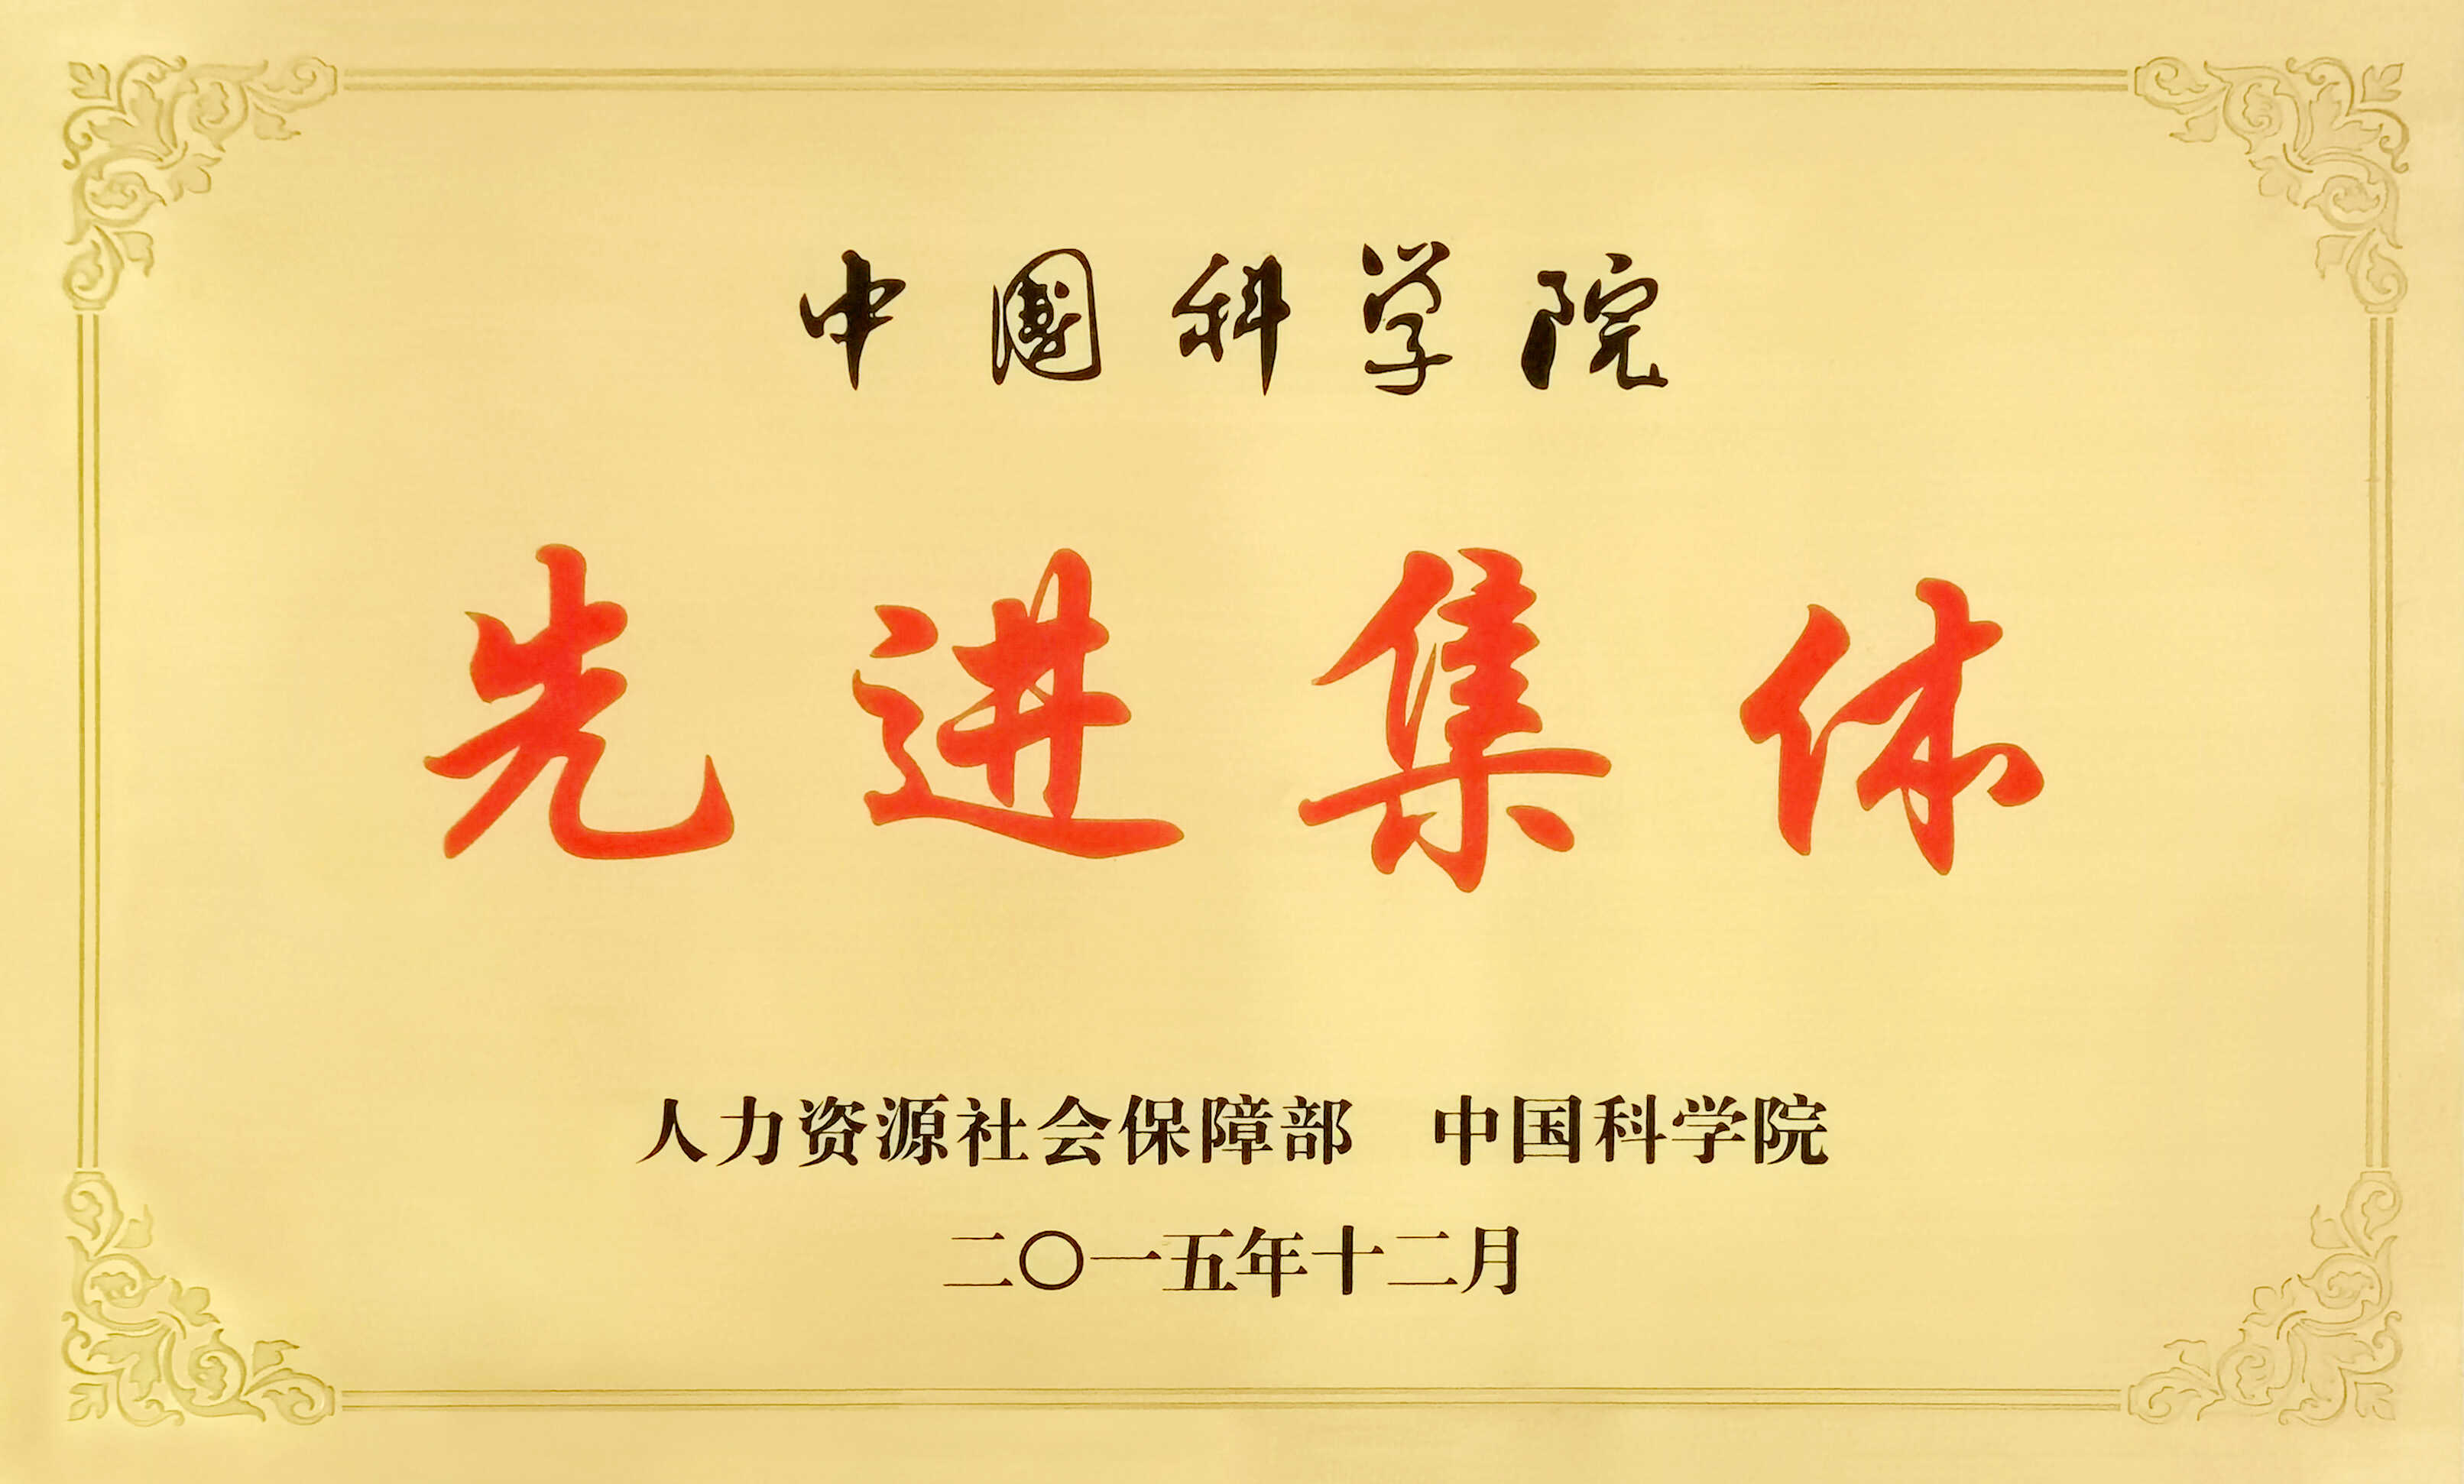 中國科学院
先进集体
人力资源社会保障部　中国科学院
二〇一五年十二月